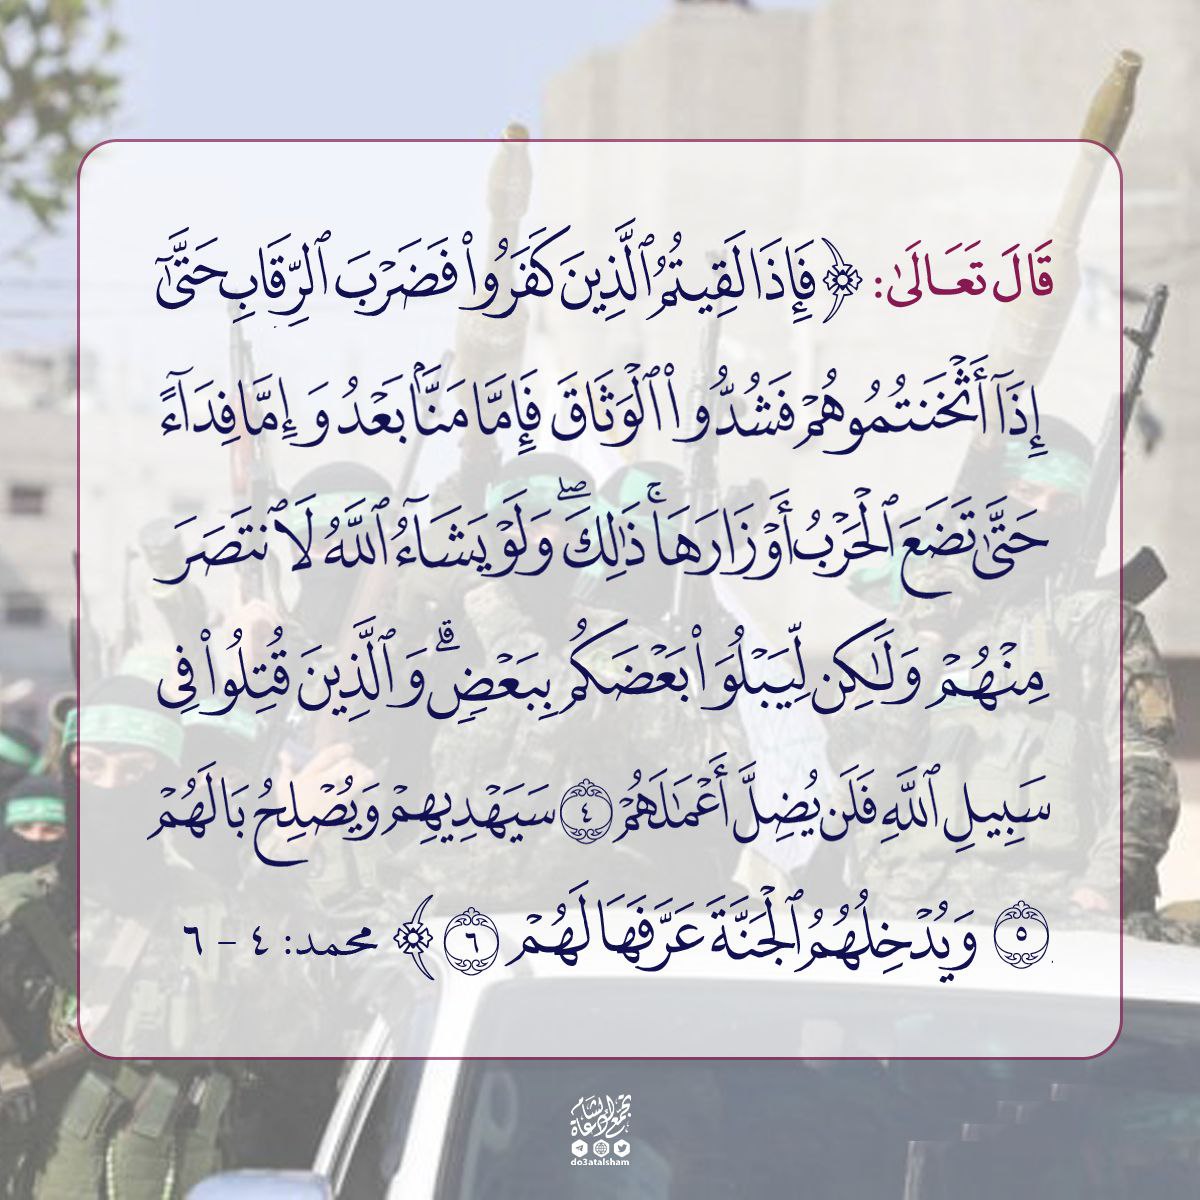 قَالَ تَعَالَىٰ: ﴿فَإِذَا لَقِيتُمُ ٱلَّذِينَ كَفَرُوا۟ فَضَرْبَ ٱلرِّقَابِ حَتَّىٰٓ
إِذَآ أَثْخَنتُمُوهُمْ فَشُدُّوا۟ ٱلْوَثَاقَ فَإِمَّا مَنًّۢا بَعْدُ وَإِمَّا فِدَآءً
حَتَّىٰ تَضَعَ ٱلْحَرْبُ أَوْزَارَهَا ۚ ذَٰلِكَ ۖ وَلَوْ يَشَآءُ ٱللَّهُ لَٱنتَصَرَ
مِنْهُمْ وَلَـٰكِن لِّيَبْلُوَا۟ بَعْضَكُم بِبَعْضٍ ۗ وَٱلَّذِينَ قُتِلُوا۟ فِى
سَبِيلِ ٱللَّهِ فَلَن يُضِلَّ أَعْمَـٰلَهُمْ ٤ سَيَهْدِيهِمْ وَيُصْلِحُ بَالَهُمْ
٥ وَيُدْخِلُهُمُ ٱلْجَنَّةَ عَرَّفَهَا لَهُمْ ٦ ﴾ محمد: ٤ - ٦
تجمع دعاة الشام
do3atalsham